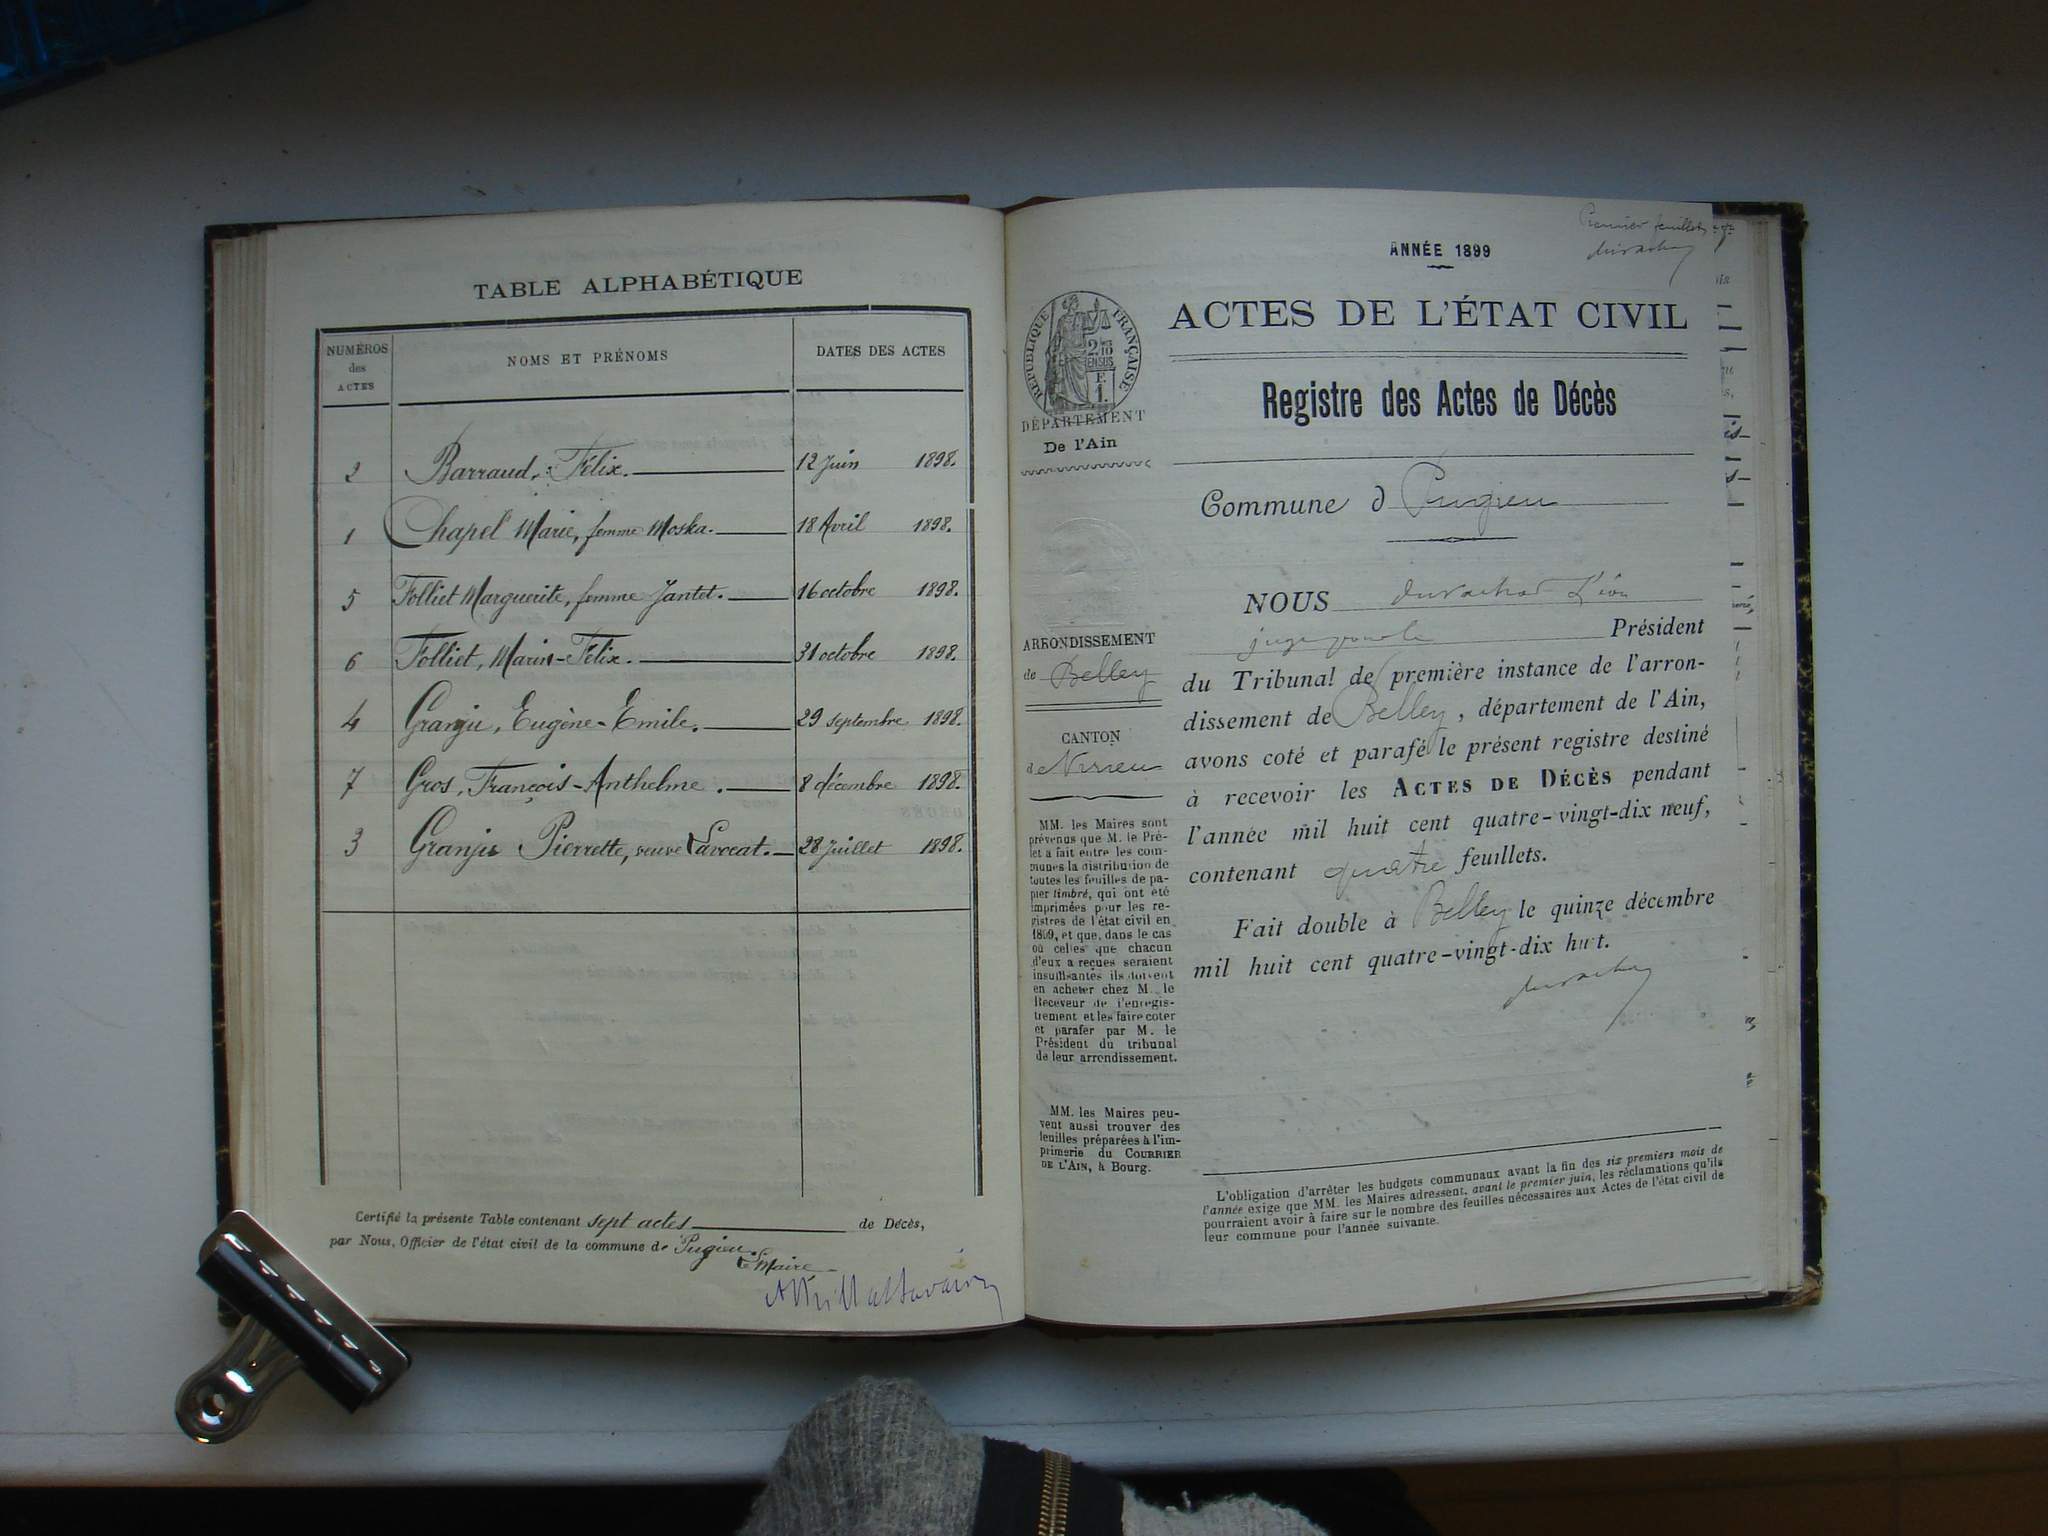 TABLE ALPHABÉTIQUE
NUMÉROS des ACTES
NOMS ET PRÉNOMS
DATES DES ACTES
2 Barraud, Félix. 12 Juin 1898.
1 Chapel Marie, femme Moska. 18 Avril 1898.
5 Folliet Marguerite, femme Jantet. 16 octobre 1898.
6 Folliet, Marin-Félix. 31 octobre 1898.
4 Granju, Eugène-Emile. 29 septembre 1898.
7 Gros, François-Anthelme. 8 décembre 1898.
3 Granju Pierrette, veuve Lavocat. 28 Juillet 1898.
Certifié la présente Table contenant sept actes de Décès,
par Nous, Officier de l'état civil de la commune de Pugieu.
Maire
Premier feuillet
ANNÉE 1899
RÉPUBLIQUE FRANÇAISE
2/10
EN SUS
F.
1.
DÉPARTEMENT
De l'Ain
ARRONDISSEMENT
de Belley
CANTON
de Virieu
MM. les Maires sont
prévenus que M. le Pré-
fet a fait entre les com-
munes la distribution de
toutes les feuilles de pa-
pier timbré, qui ont été
imprimées pour les re-
gistres de l'état civil en
1899, et que, dans le cas
où celles que chacun
d'eux a reçues seraient
insuffisantes ils doivent
en acheter chez M. le
Receveur de l'enregis-
trement et les faire coter
et parafer par M. le
Président du tribunal
de leur arrondissement.
MM. les Maires peu-
vent aussi trouver des
feuilles préparées à l'im-
primerie du COURRIER
DE L'AIN, à Bourg.
ACTES DE L'ÉTAT CIVIL
Registre des Actes de Décès
Commune d Pugieu
NOUS Durochat Léon
Président
du Tribunal de première instance de l'arron-
dissement de Belley, département de l'Ain,
avons coté et parafé le présent registre destiné
à recevoir les ACTES DE DÉCÈS pendant
l'année mil huit cent quatre-vingt-dix neuf,
contenant quatre feuillets.
Fait double à Belley le quinze décembre
mil huit cent quatre-vingt-dix huit.
L'obligation d'arrêter les budgets communaux avant la fin des six premiers mois de
l'année exige que MM. les Maires adressent, avant le premier juin, les réclamations qu'ils
pourraient avoir à faire sur le nombre des feuilles nécessaires aux Actes de l'état civil de
leur commune pour l'année suivante.